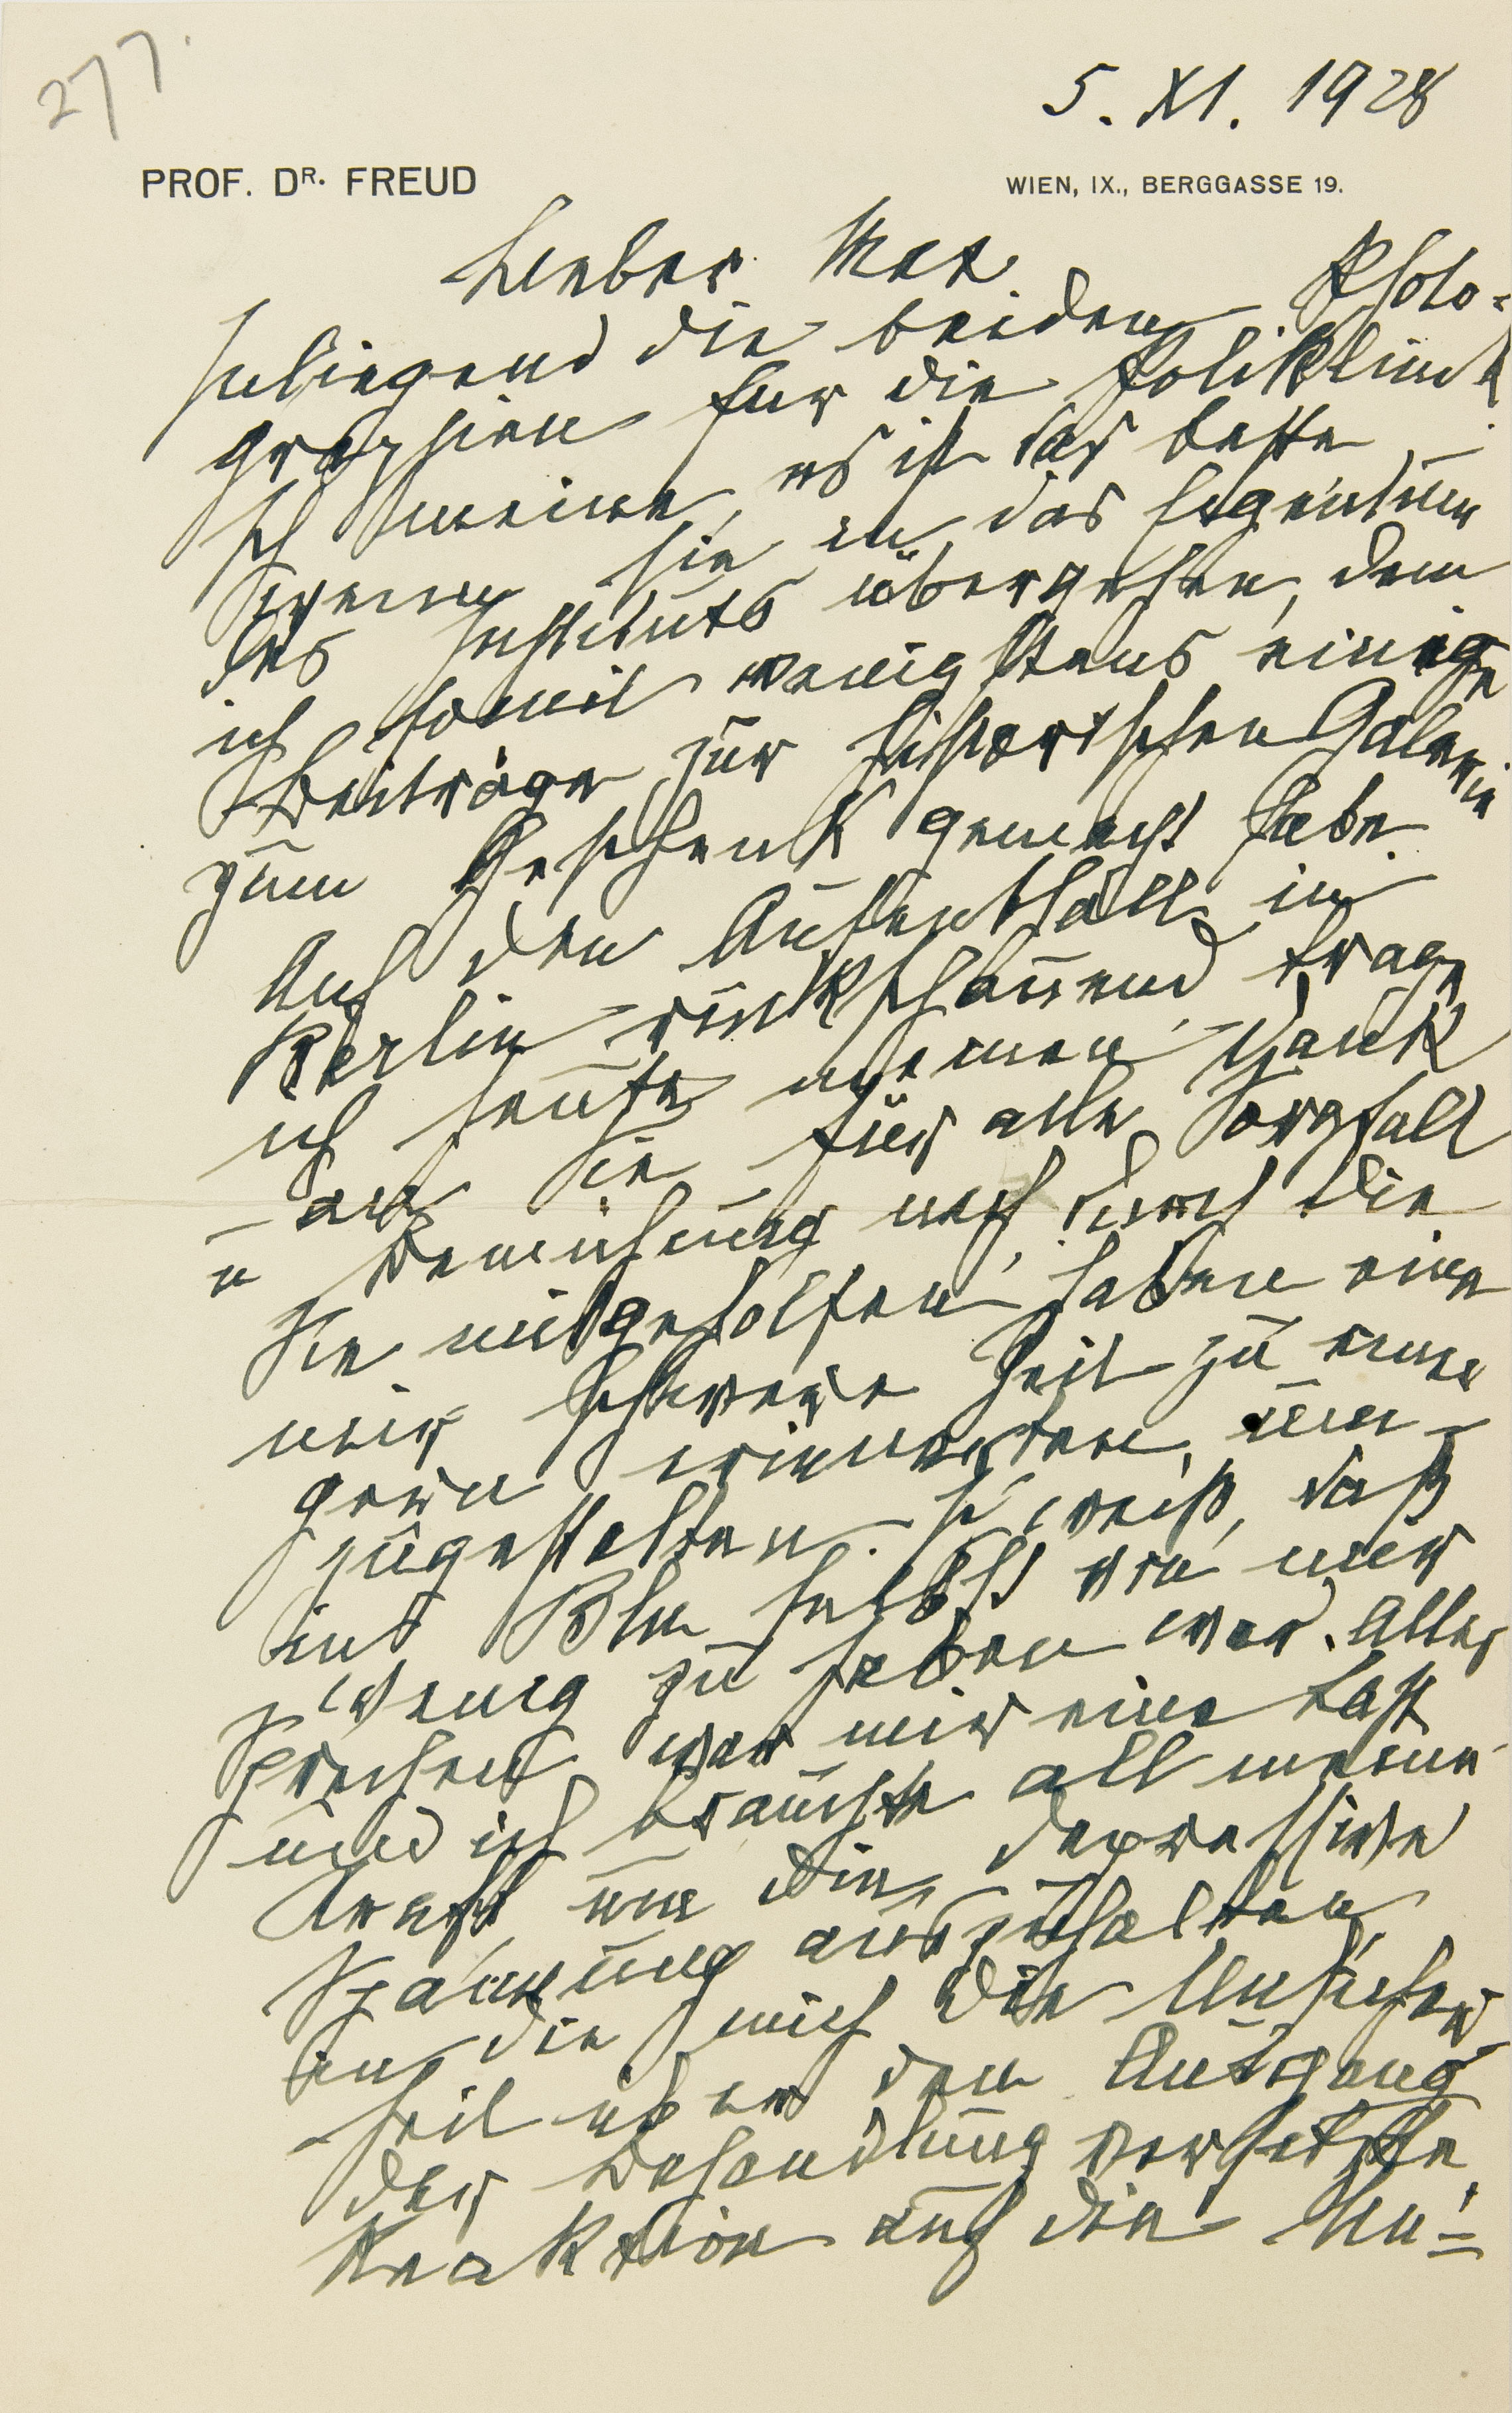 277.
5. XI. 1928
PROF. DR. FREUD
WIEN, IX., BERGGASSE 19.
Lieber Max
Inliegend die beiden Photo=
graphien für die Poliklinik
Ich meine, es ist das beste,
wenn sie in das Eigentum
des Instituts übergehen, dem
ich somit wenigstens einige
Beiträge zur historischen Galerie
zum Geschenk gemacht habe.
Auf den Aufenthalt in
Berlin rückschauend trage
ich heute meinen Dank
an Sie für alle Sorgfalt
u Bemühung nach, durch die
Sie mitgeholfen haben eine
mir schwere Zeit zu einer
gern erinnerten um=
zugestalten. Ich weiß, daß
in Bln selbst von mir
wenig zu haben war. Alles
Sprechen war mir eine Last
und ich brauchte all meine
Kraft um die depressive
Spannung auszuhalten,
in die mich die Unsicher
heit über den Ausgang
der Behandlung versetzte.
Reaktion auf die